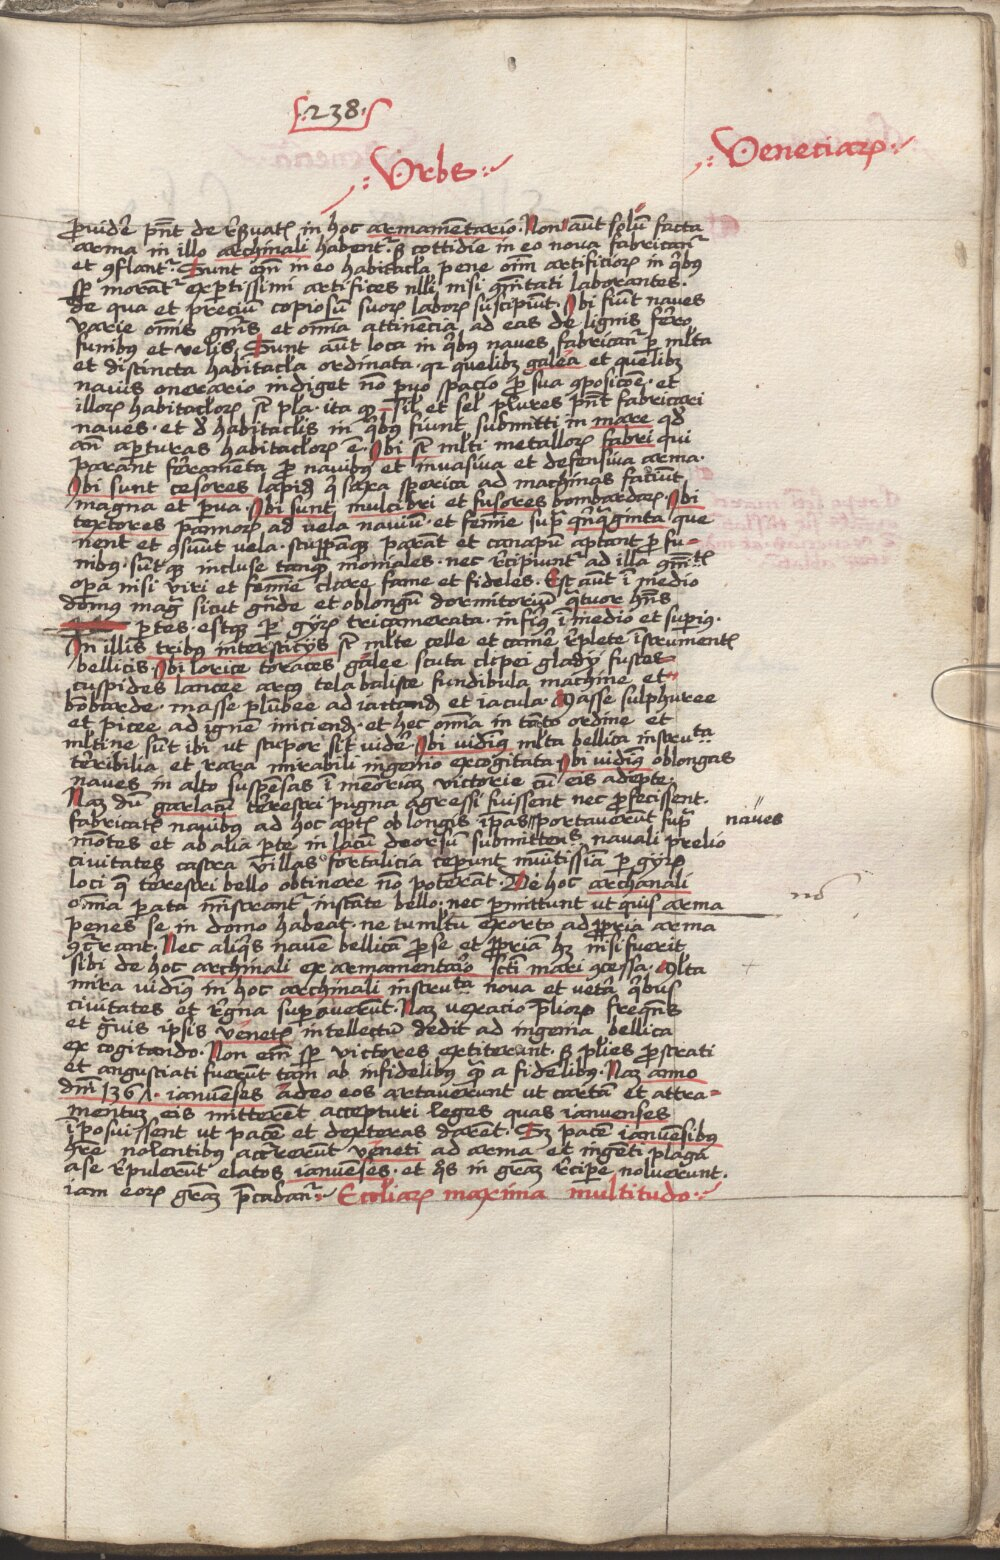 238
Urbs
Veneciar
p̄uider̄ pn̄t de r̄seruat in hoc armamētario. Non aūt solū facta
arma in illo archinali habent' s; cottidie in eo noua fabricant'
et ꝯflant'. Sunt em̄ in eo habitac̄la pene om̄i artificior in q̄bus
sp̄ morant' exp̄tissimi artifices nlli nisi ꝯm̄itati laborantes.
de qua et preciū copiosū suor labor suscipiūt. Ubi fiūt naues
varie om̄is gn̄is et om̄ia attinencia ad eas de lignis ferro
funibus et uelis. Sunt aūt loca in q̄bus naues fabricant' p ml̄ta
et distincta habitac̄la ordinata. qr quelib; galea et quelib;
nauis oneraria indiget nō puo spacio p sua ꝯposicōe. et
illor habitac̄lor st pl̄a. ita q sil̄ et sel̄ pl̄ures pn̄t fabricari
naues. et d̄ habitaclis in q̄bus fiunt submitti in mare qd
an̄ apturas habitac̄lor ē. Ubi st ml̄ti metallor fabri qui
parant ferramenta p nauibus et inuasiua et defensiua arma.
Ubi sunt cesores lapid q̄ saxa sperica ad machinas faciūt
magna et pua. Ubi sunt mulcibri et fusores bombardar. Ubi
textores pannor ad uela nauiū. et femine sup q̄nq̄ginta que
nent et ꝯsuūt uela. stuppāq; parāt et canapū aptant p fu-
nibus. sūtq; incluse tanq; moniales. nec recipiunt' ad illa ꝯm̄it
opa nisi viri et femine clare fame et fideles. Est aūt ī medio
domus maḡ sicut gr̄nde et oblongū dormitoriū q̄tuor hn̄s
ptes. estq; p gyr tricamerata. inferius ī medio et superius.
In illis tribus interstitijs st ml̄te celle et camer̄ replete īstrument
bellicis. Ubi lorice toraces galee scuta clipei gladij fustes
cuspides lancee arcus tela baliste fundibula machine et
bōbarde. masse plūbee ad iactand et iacula. Masse sulphuree
et picee ad ignē iniciend. et hec om̄ia in tāto ordine et
ml̄tine sūt ibi ut stupor sit uider̄. Ubi uidimus ml̄ta bellica instruta
terribilia et rara mirabili ingenio excogitata. Ubi uidimus oblongas
naues in alto suspēsas ī meōriam victorie cū eis adepte.
Nam dū garlacū terrestri pugna agressi fuissent nec profecissent.
fabricat nauibus ad hoc apt oblongis īpas portauerūt sup naues
mōtes et ab alia pte in lacū deorsū submittens nauali prelio
ciuitates castra villas fortalicia cepunt munītissīa p gyr
loci q̄ terrestri bello obtinere nō poterāt. De hoc archanali
om̄ia parata ministrant' instāte bello. nec p̄mittunt ut quis arma
penes se in domo habeat. ne tumltu exorto ad p̄pria arma
ꝯcrrant. Nec aliq̄s nauē bellicā p se et p̄priā h; nisi fuerit
sibi de hoc archinali ex armamentario scti mari ꝯcessa. Ml̄ta
mira uidimus in hoc archinali instruta noua et uetera q̄bus
ciuitates et regna supauerūt. Nam vexacio prelior frequens
et grauis ipsis venet intellectū dedit ad ingenia bellica
ex cogitando. Non em̄ sp̄ victores extiterunt. s; pl̄ies prostrati
et angustiati fuerūt tam ab infidelibus q̄ a fidelibus. Nam anno
dn̄i 136Λ. ianuenses adeo eos artauerunt ut cartam et attra-
mentum eis mitterēt accepturi leges quas ianuenses
īposuissent ut pacē et dexteras darēt. S; pacē ianuēsibus
hr̄e nolentibus accrrerūt veneti ad arma et ingēti plaga
a se repulerūt elatos ianuēses. et h̄os in grām recipe noluerunt.
iam eor grām p̄cabant'. Eccl̄iar maxima multitudo